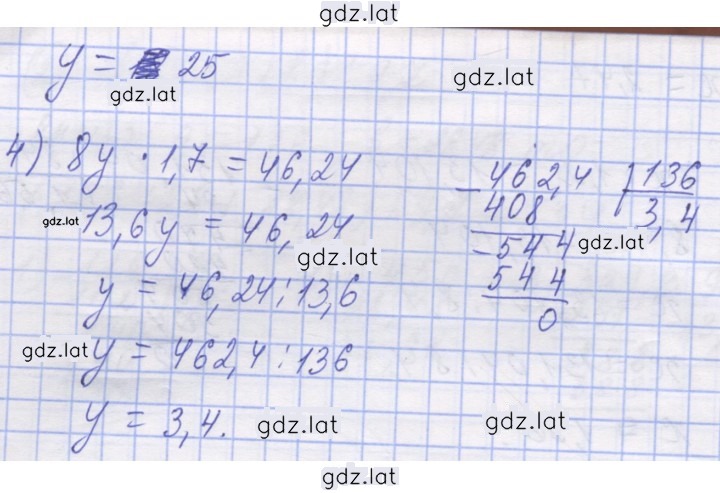 gdz.lat
y = 25
gdz.lat
gdz.lat
4) 8y · 1,7 = 46,24
462,4 | 136
408 3,4
gdz.lat
13,6y = 46,24
544
gdz.lat
gdz.lat
544
y = 46,24 : 13,6
0
gdz.lat
y = 462,4 : 136
y = 3,4.
gdz.lat
gdz.lat
gdz.lat